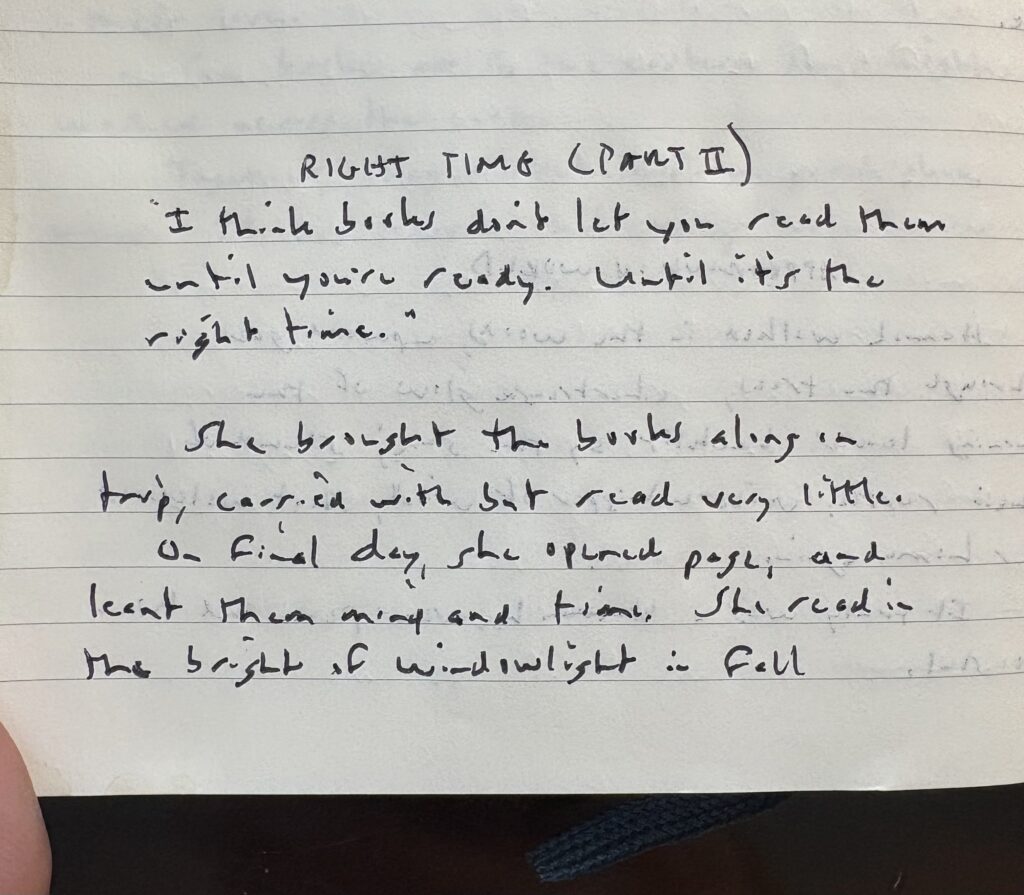 RIGHT TIME (PART II)
"I think books don't let you read them
until you're ready. Until it's the
right time."
She brought the books along in
trip, carried with but read very little.
On final day, she opened page, and
leant them mind and time. She read in
the bright of windowlight in fall